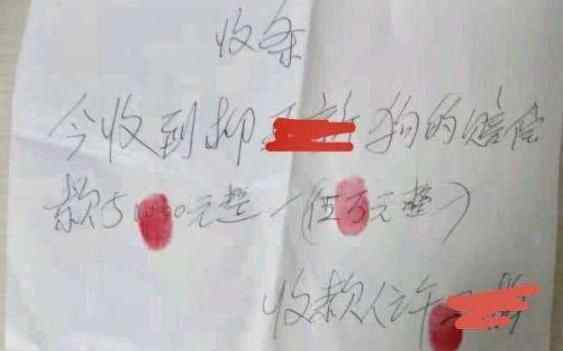 收条
今收到柳 狗的赔偿
款50000元整(伍万元整)
收款人许